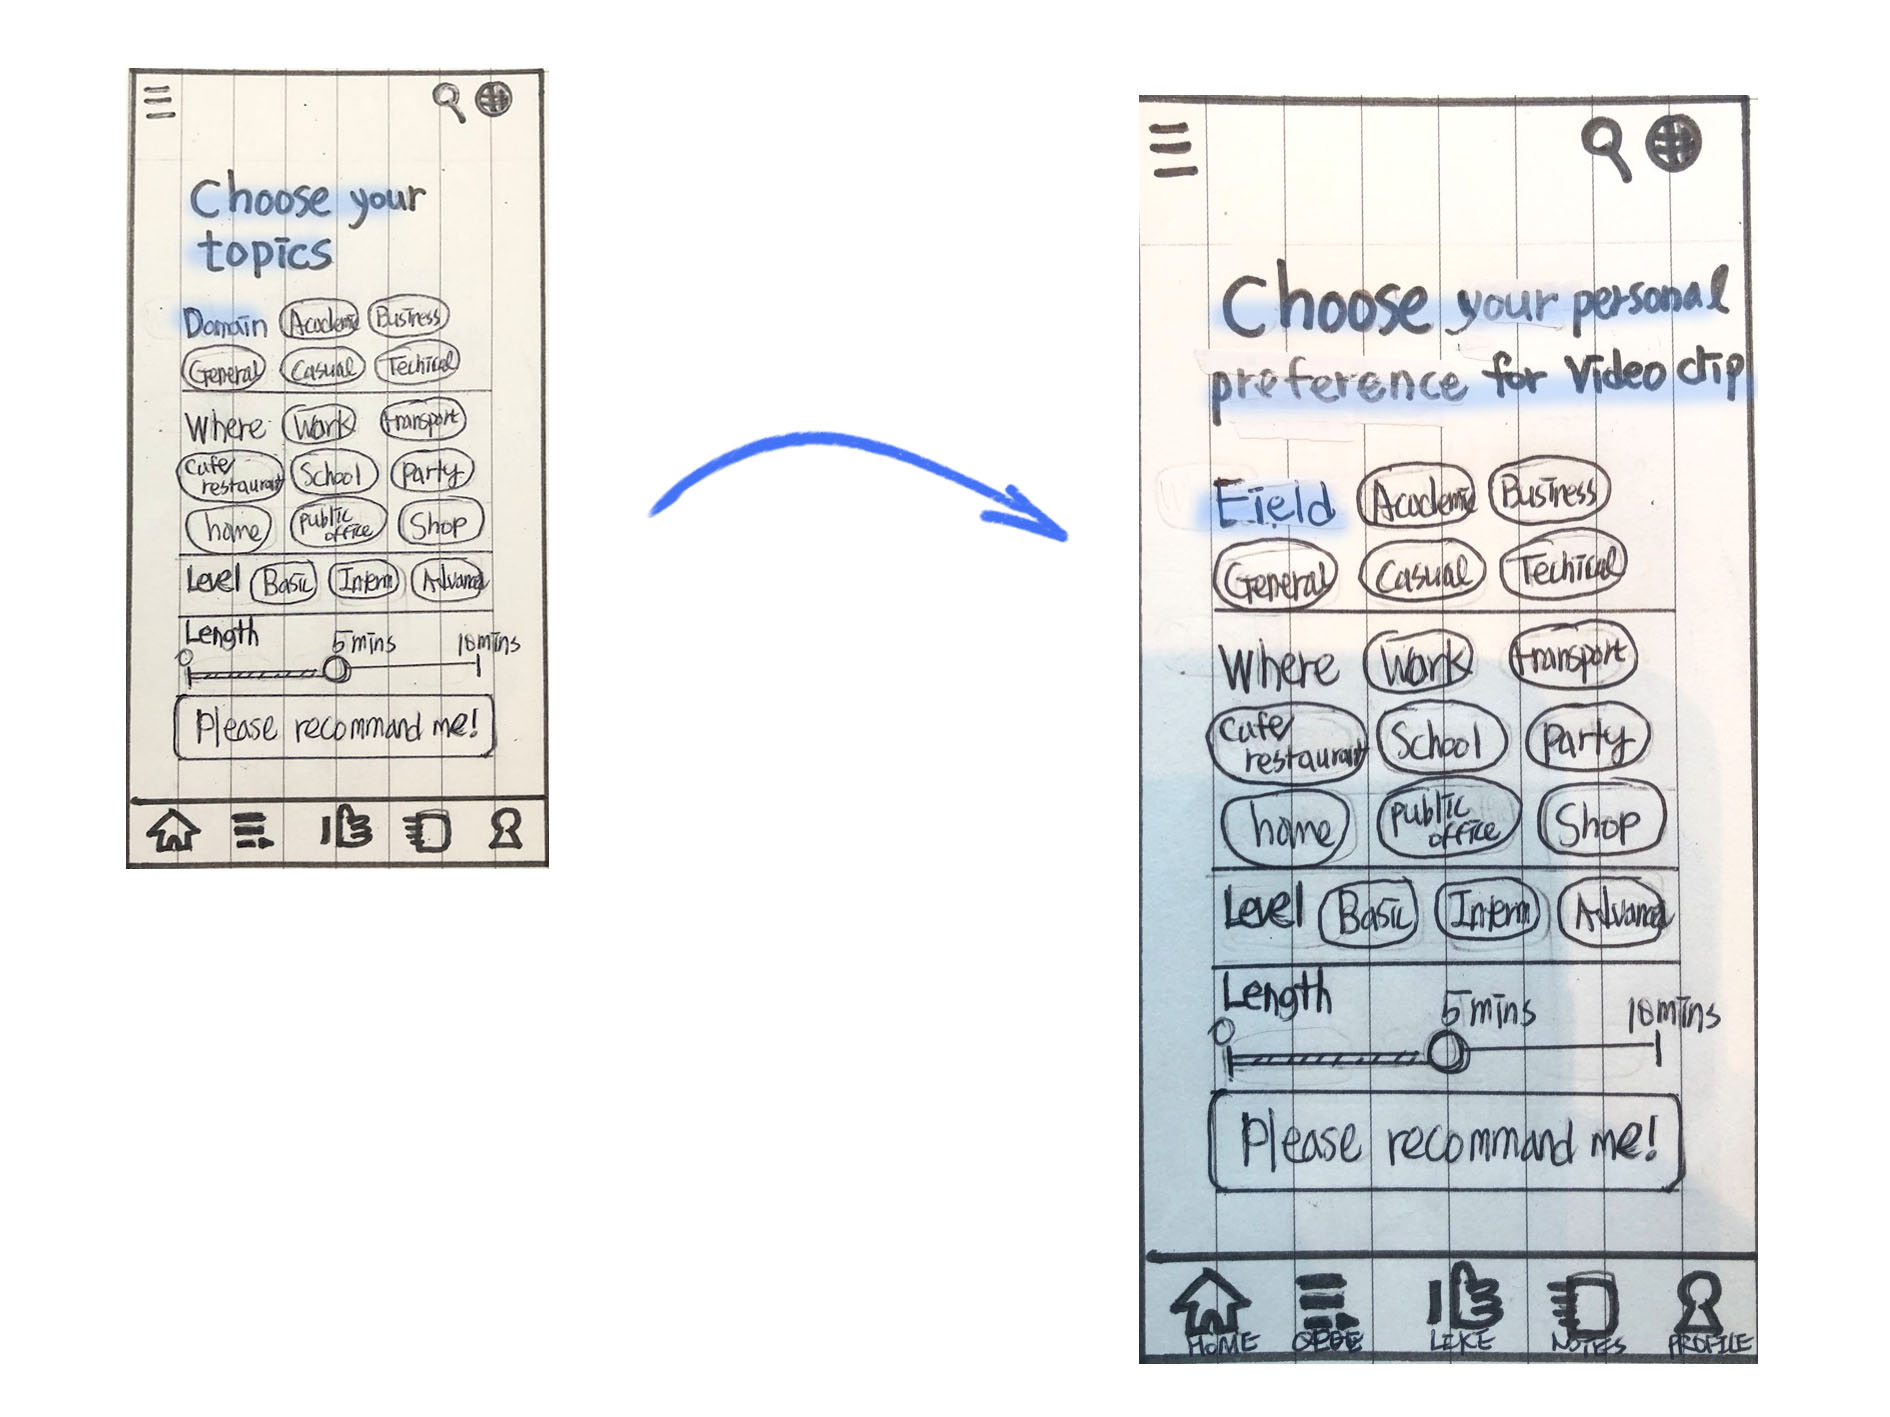 Choose your
topics
Domain Academic Business
General Casual Techical
Where Work transport
Cafe/
restaurant School Party
home public
office Shop
Level Basic Interm Advanced
Length 5 mins 10 mins
0
Please recommand me!
Choose your personal
preference for Video clip
Field Academic Business
General Casual Techical
Where Work transport
Cafe/
restaurant School Party
home public
office Shop
Level Basic Interm Advanced
Length 5 mins 10 mins
0
Please recommand me!
HOME LIKE NOTES PROFILE